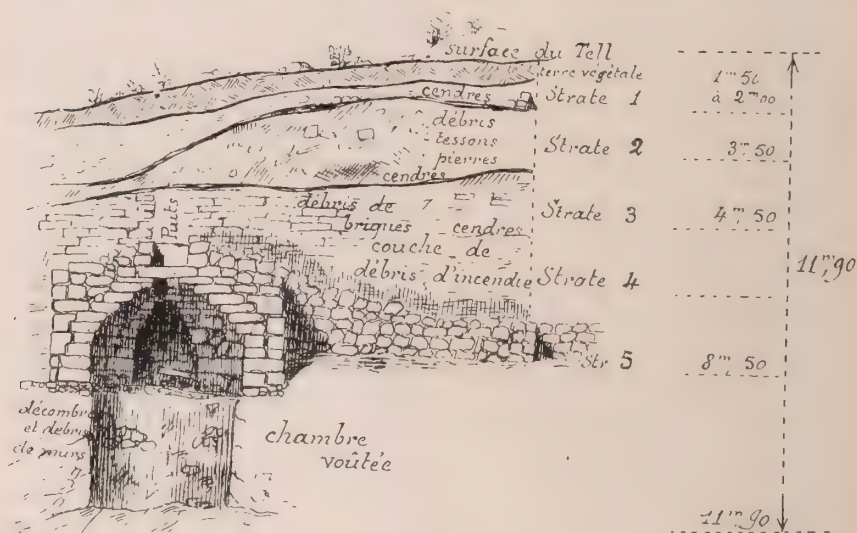 surface du Tell
terre végétale
cendres Strate 1
débris
tessons
pierres
cendres
Strate 2
débris de
briques cendres
Strate 3
couche de
débris d'incendie Strate 4
Str 5
Puits
décombre
et débris
de murs
chambre
voûtée
à 2m00
3m 50
4m 50
8m 50
11m,90
11m,90